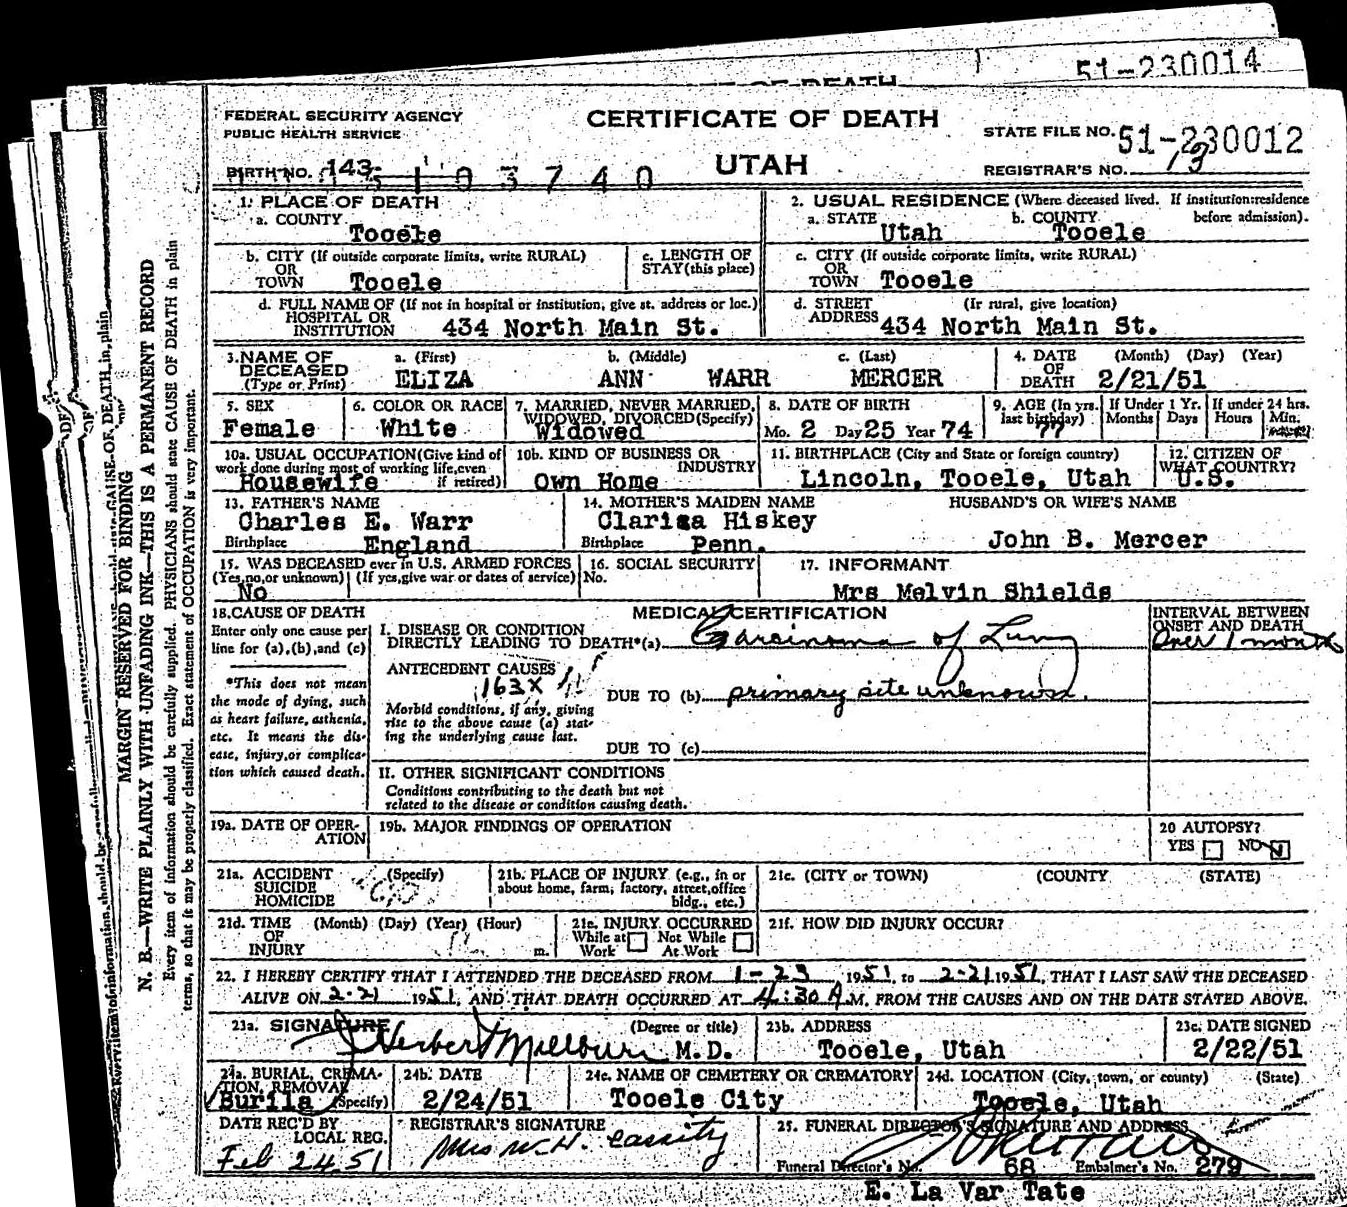 51-230014
OF DEATH
FEDERAL SECURITY AGENCY
PUBLIC HEALTH SERVICE
CERTIFICATE OF DEATH
UTAH
STATE FILE NO. 51-230012
REGISTRAR'S NO. 13
BIRTH NO. 143
103740
1. PLACE OF DEATH
a. COUNTY
Tooele
2. USUAL RESIDENCE (Where deceased lived. If institution:residence before admission).
a. STATE b. COUNTY
Utah Tooele
b. CITY (If outside corporate limits, write RURAL)
OR
TOWN Tooele
c. LENGTH OF
STAY(this place)
c. CITY (If outside corporate limits, write RURAL)
OR
TOWN Tooele
d. FULL NAME OF (If not in hospital or institution, give st. address or loc.)
HOSPITAL OR
INSTITUTION 434 North Main St.
d. STREET (If rural, give location)
ADDRESS 434 North Main St.
3. NAME OF a. (First) b. (Middle) c. (Last)
DECEASED
(Type or Print) ELIZA ANN WARR MERCER
4. DATE (Month) (Day) (Year)
OF
DEATH 2/21/51
5. SEX
Female
6. COLOR OR RACE
White
7. MARRIED, NEVER MARRIED,
WIDOWED, DIVORCED(Specify)
Widowed
8. DATE OF BIRTH
Mo. 2 Day 25 Year 74
9. AGE (In yrs.
last birthday)
77
If Under 1 Yr.
Months Days
If under 24 hrs.
Hours Min.
10a. USUAL OCCUPATION(Give kind of
work done during most of working life,even
if retired)
Housewife
10b. KIND OF BUSINESS OR
INDUSTRY
Own Home
11. BIRTHPLACE (City and State or foreign country)
Lincoln, Tooele, Utah
12. CITIZEN OF
WHAT COUNTRY?
U.S.
13. FATHER'S NAME
Charles E. Warr
Birthplace England
14. MOTHER'S MAIDEN NAME
Clarisa Hiskey
Birthplace Penn.
HUSBAND'S OR WIFE'S NAME
John B. Mercer
15. WAS DECEASED ever in U.S. ARMED FORCES
(Yes,no,or unknown) (If yes,give war or dates of service)
No
16. SOCIAL SECURITY
No.
17. INFORMANT
Mrs Melvin Shields
18. CAUSE OF DEATH
Enter only one cause per
line for (a),(b),and (c)
*This does not mean
the mode of dying, such
as heart failure, asthenia,
etc. It means the dis-
ease, injury,or complica-
tion which caused death.
MEDICAL CERTIFICATION
I. DISEASE OR CONDITION
DIRECTLY LEADING TO DEATH*(a) Carcinoma of Lung
ANTECEDENT CAUSES
163X
DUE TO (b) primary site unknown.
Morbid conditions, if any, giving
rise to the above cause (a) stat-
ing the underlying cause last.
DUE TO (c)
INTERVAL BETWEEN
ONSET AND DEATH
Over 1 month
II. OTHER SIGNIFICANT CONDITIONS
Conditions contributing to the death but not
related to the disease or condition causing death.
19a. DATE OF OPER-
ATION
19b. MAJOR FINDINGS OF OPERATION
20 AUTOPSY?
YES NO
21a. ACCIDENT (Specify)
SUICIDE
HOMICIDE
21b. PLACE OF INJURY (e.g., in or
about home, farm, factory, street,office
bldg., etc.)
21c. (CITY or TOWN) (COUNTY) (STATE)
21d. TIME (Month) (Day) (Year) (Hour)
OF
INJURY m.
21e. INJURY OCCURRED
While at Not While
Work At Work
21f. HOW DID INJURY OCCUR?
22. I HEREBY CERTIFY THAT I ATTENDED THE DECEASED FROM 1-23 1951, to 2-21 1951, THAT I LAST SAW THE DECEASED
ALIVE ON 2-21 1951, AND THAT DEATH OCCURRED AT 4:30 A M. FROM THE CAUSES AND ON THE DATE STATED ABOVE.
23a. SIGNATURE (Degree or title)
J Herbert Millburn M.D.
23b. ADDRESS
Tooele, Utah
23c. DATE SIGNED
2/22/51
24a. BURIAL, CREMA-
TION, REMOVAL
(Specify)
Burila
24b. DATE
2/24/51
24c. NAME OF CEMETERY OR CREMATORY
Tooele City
24d. LOCATION (City, town, or county) (State)
Tooele, Utah
DATE REC'D BY
LOCAL REG.
Feb 24 51
REGISTRAR'S SIGNATURE
Mrs W.H. Cassity
25. FUNERAL DIRECTOR'S SIGNATURE AND ADDRESS
Funeral Director's No. 68 Embalmer's No. 279
E. La Var Tate
MARGIN RESERVED FOR BINDING
N. B.—WRITE PLAINLY WITH UNFADING INK—THIS IS A PERMANENT RECORD
Every item of information should be carefully supplied. PHYSICIANS should state CAUSE OF DEATH in plain
terms, so that it may be properly classified. Exact statement of OCCUPATION is very important.